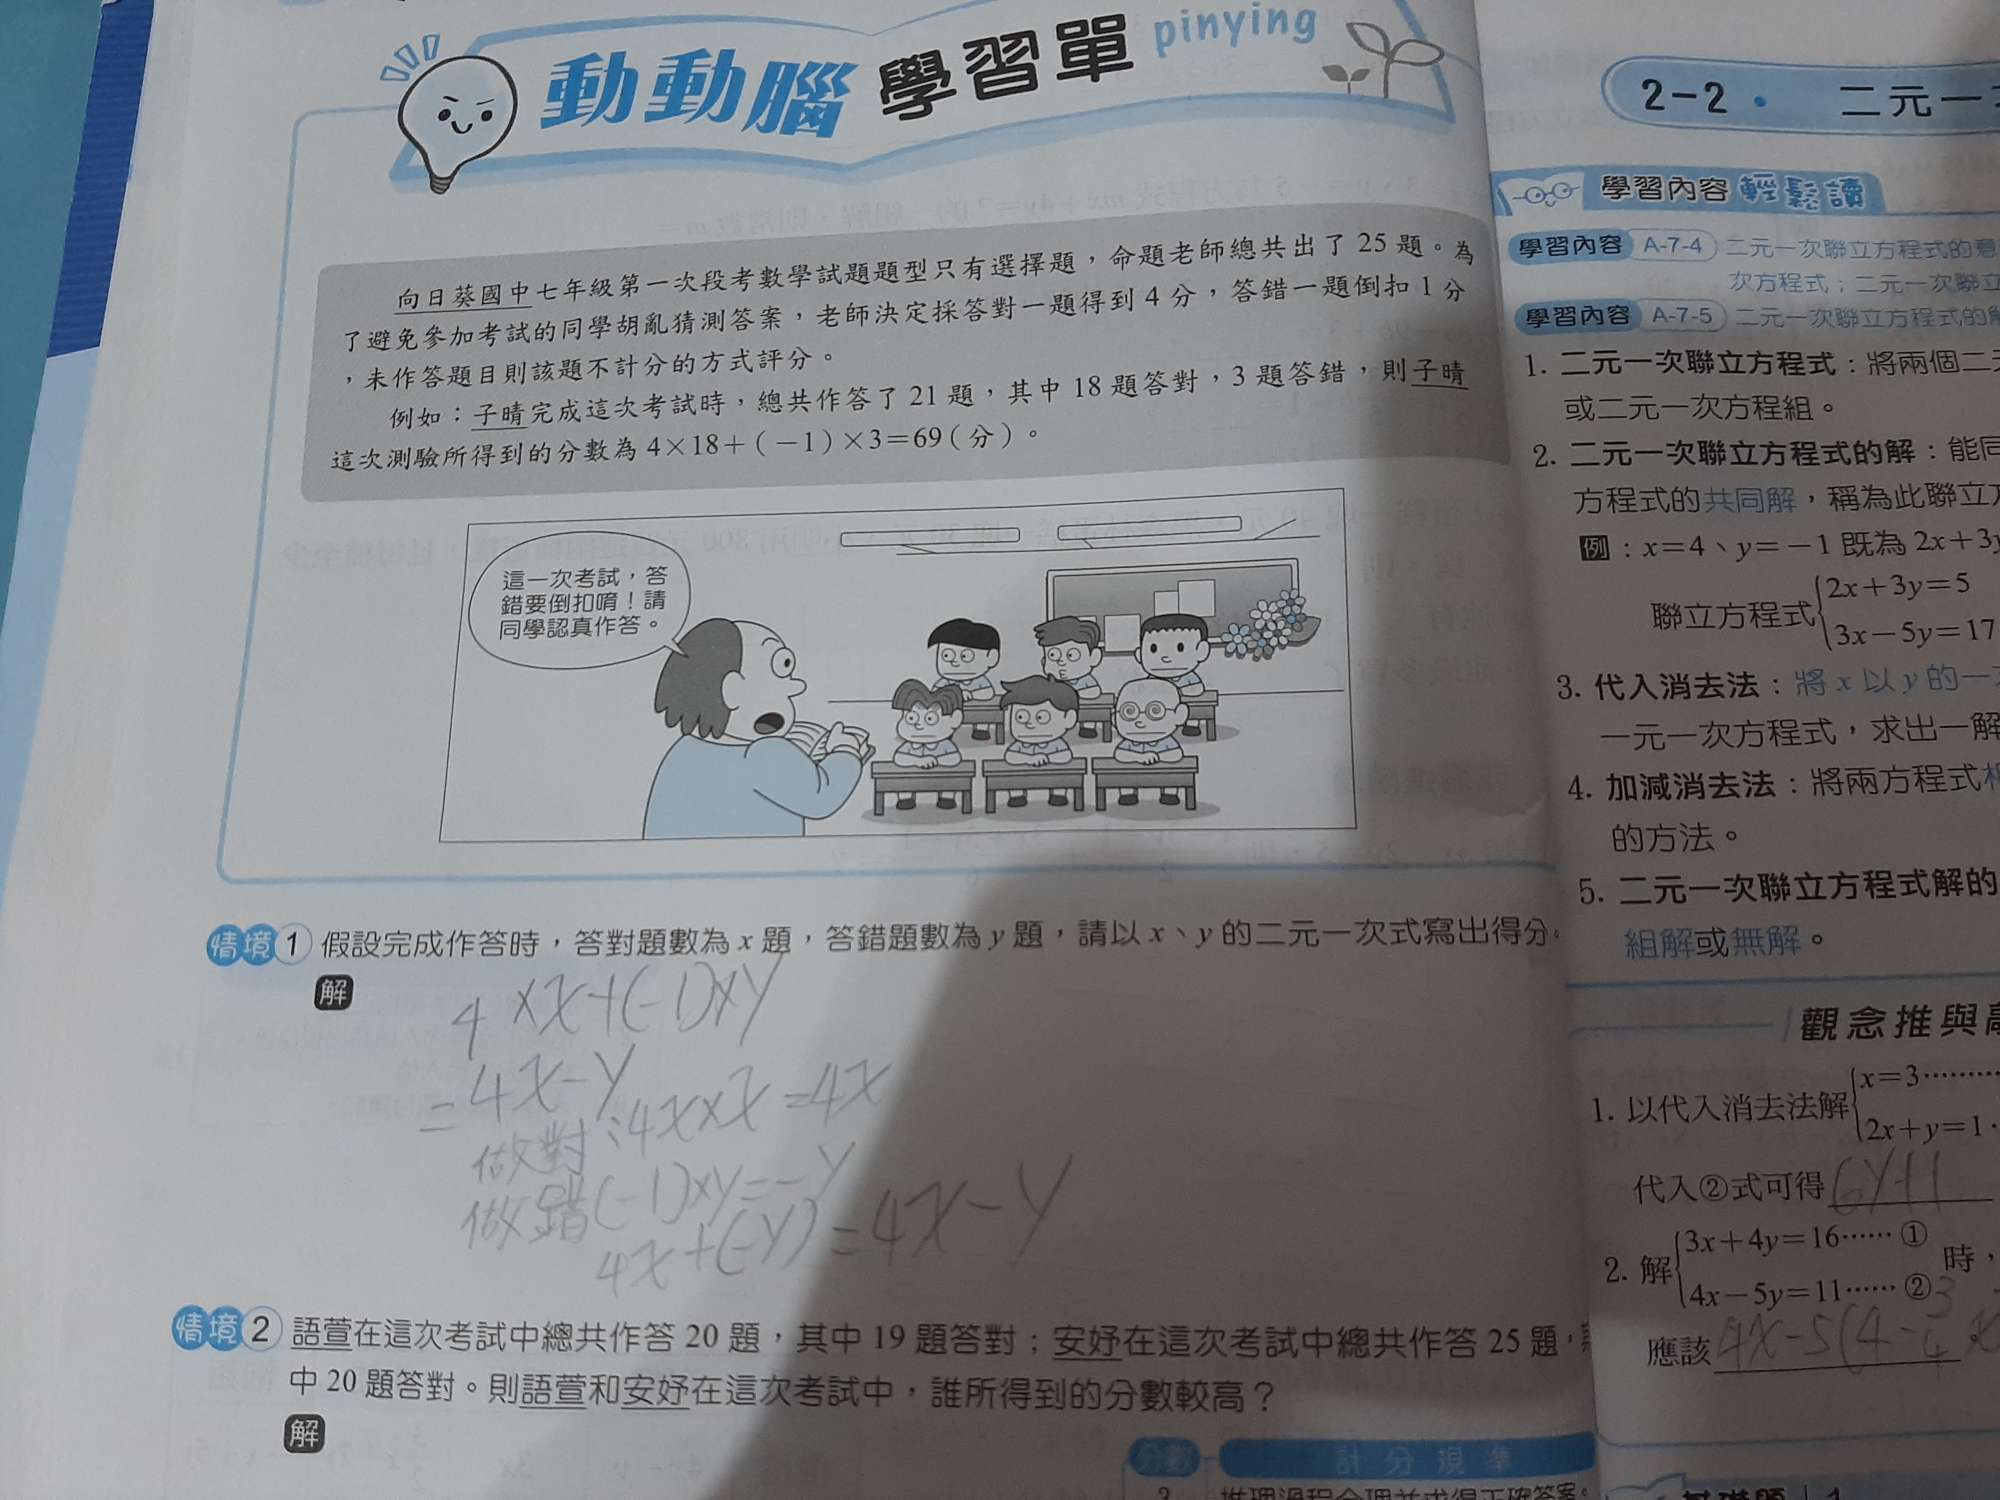 動動腦 學習單 pinying
向日葵國中七年級第一次段考數學試題題型只有選擇題，命題老師總共出了 25 題。為
了避免參加考試的同學胡亂猜測答案，老師決定採答對一題得到 4 分，答錯一題倒扣 1 分
，未作答題目則該題不計分的方式評分。
例如：子晴完成這次考試時，總共作答了 21 題，其中 18 題答對，3 題答錯，則子晴
這次測驗所得到的分數為 4×18＋(－1)×3＝69(分)。
這一次考試，答
錯要倒扣唷！請
同學認真作答。
情境 1 假設完成作答時，答對題數為 x 題，答錯題數為 y 題，請以 x、y 的二元一次式寫出得分。
解
4×x+(-1)×y
=4x-y
做對:4××x=4x
做錯(-1)×y=-y
4x+(-y)=4x-y
情境 2 語萱在這次考試中總共作答 20 題，其中 19 題答對；安妤在這次考試中總共作答 25 題，
中 20 題答對。則語萱和安妤在這次考試中，誰所得到的分數較高？
解
分數 計分規準
3 推理過程合理並求得正確答案。
2-2 · 二元一
學習內容 輕鬆讀
學習內容 A-7-4 二元一次聯立方程式的意
次方程式；二元一次聯立
學習內容 A-7-5 二元一次聯立方程式的解
1. 二元一次聯立方程式：將兩個二元
或二元一次方程組。
2. 二元一次聯立方程式的解：能同
方程式的共同解，稱為此聯立方
例：x＝4、y＝－1 既為 2x＋3y
聯立方程式 2x＋3y＝5
3x－5y＝17
3. 代入消去法：將 x 以 y 的一
一元一次方程式，求出一解
4. 加減消去法：將兩方程式相
的方法。
5. 二元一次聯立方程式解的
組解或無解。
觀念推與敲
1. 以代入消去法解 x＝3………
2x＋y＝1‧
代入②式可得 6y+1
2. 解 3x＋4y＝16…… ① 時，
4x－5y＝11…… ②
應該 4x-5(4-3/4x
基礎題 1